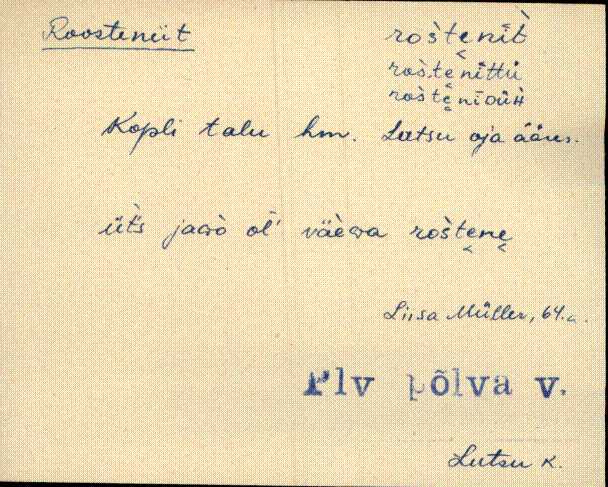 Roosteniit
rošte̬nìt̀
rošte̬nìttü
rošte̬nìDüH
Kopli talu hm. Lutsu oja ääres.
üt̀s jaGò òĺ väèGa rošte̬ne̬
Liisa Müller, 64.a.
Plv põlva v.
Lutsu k.